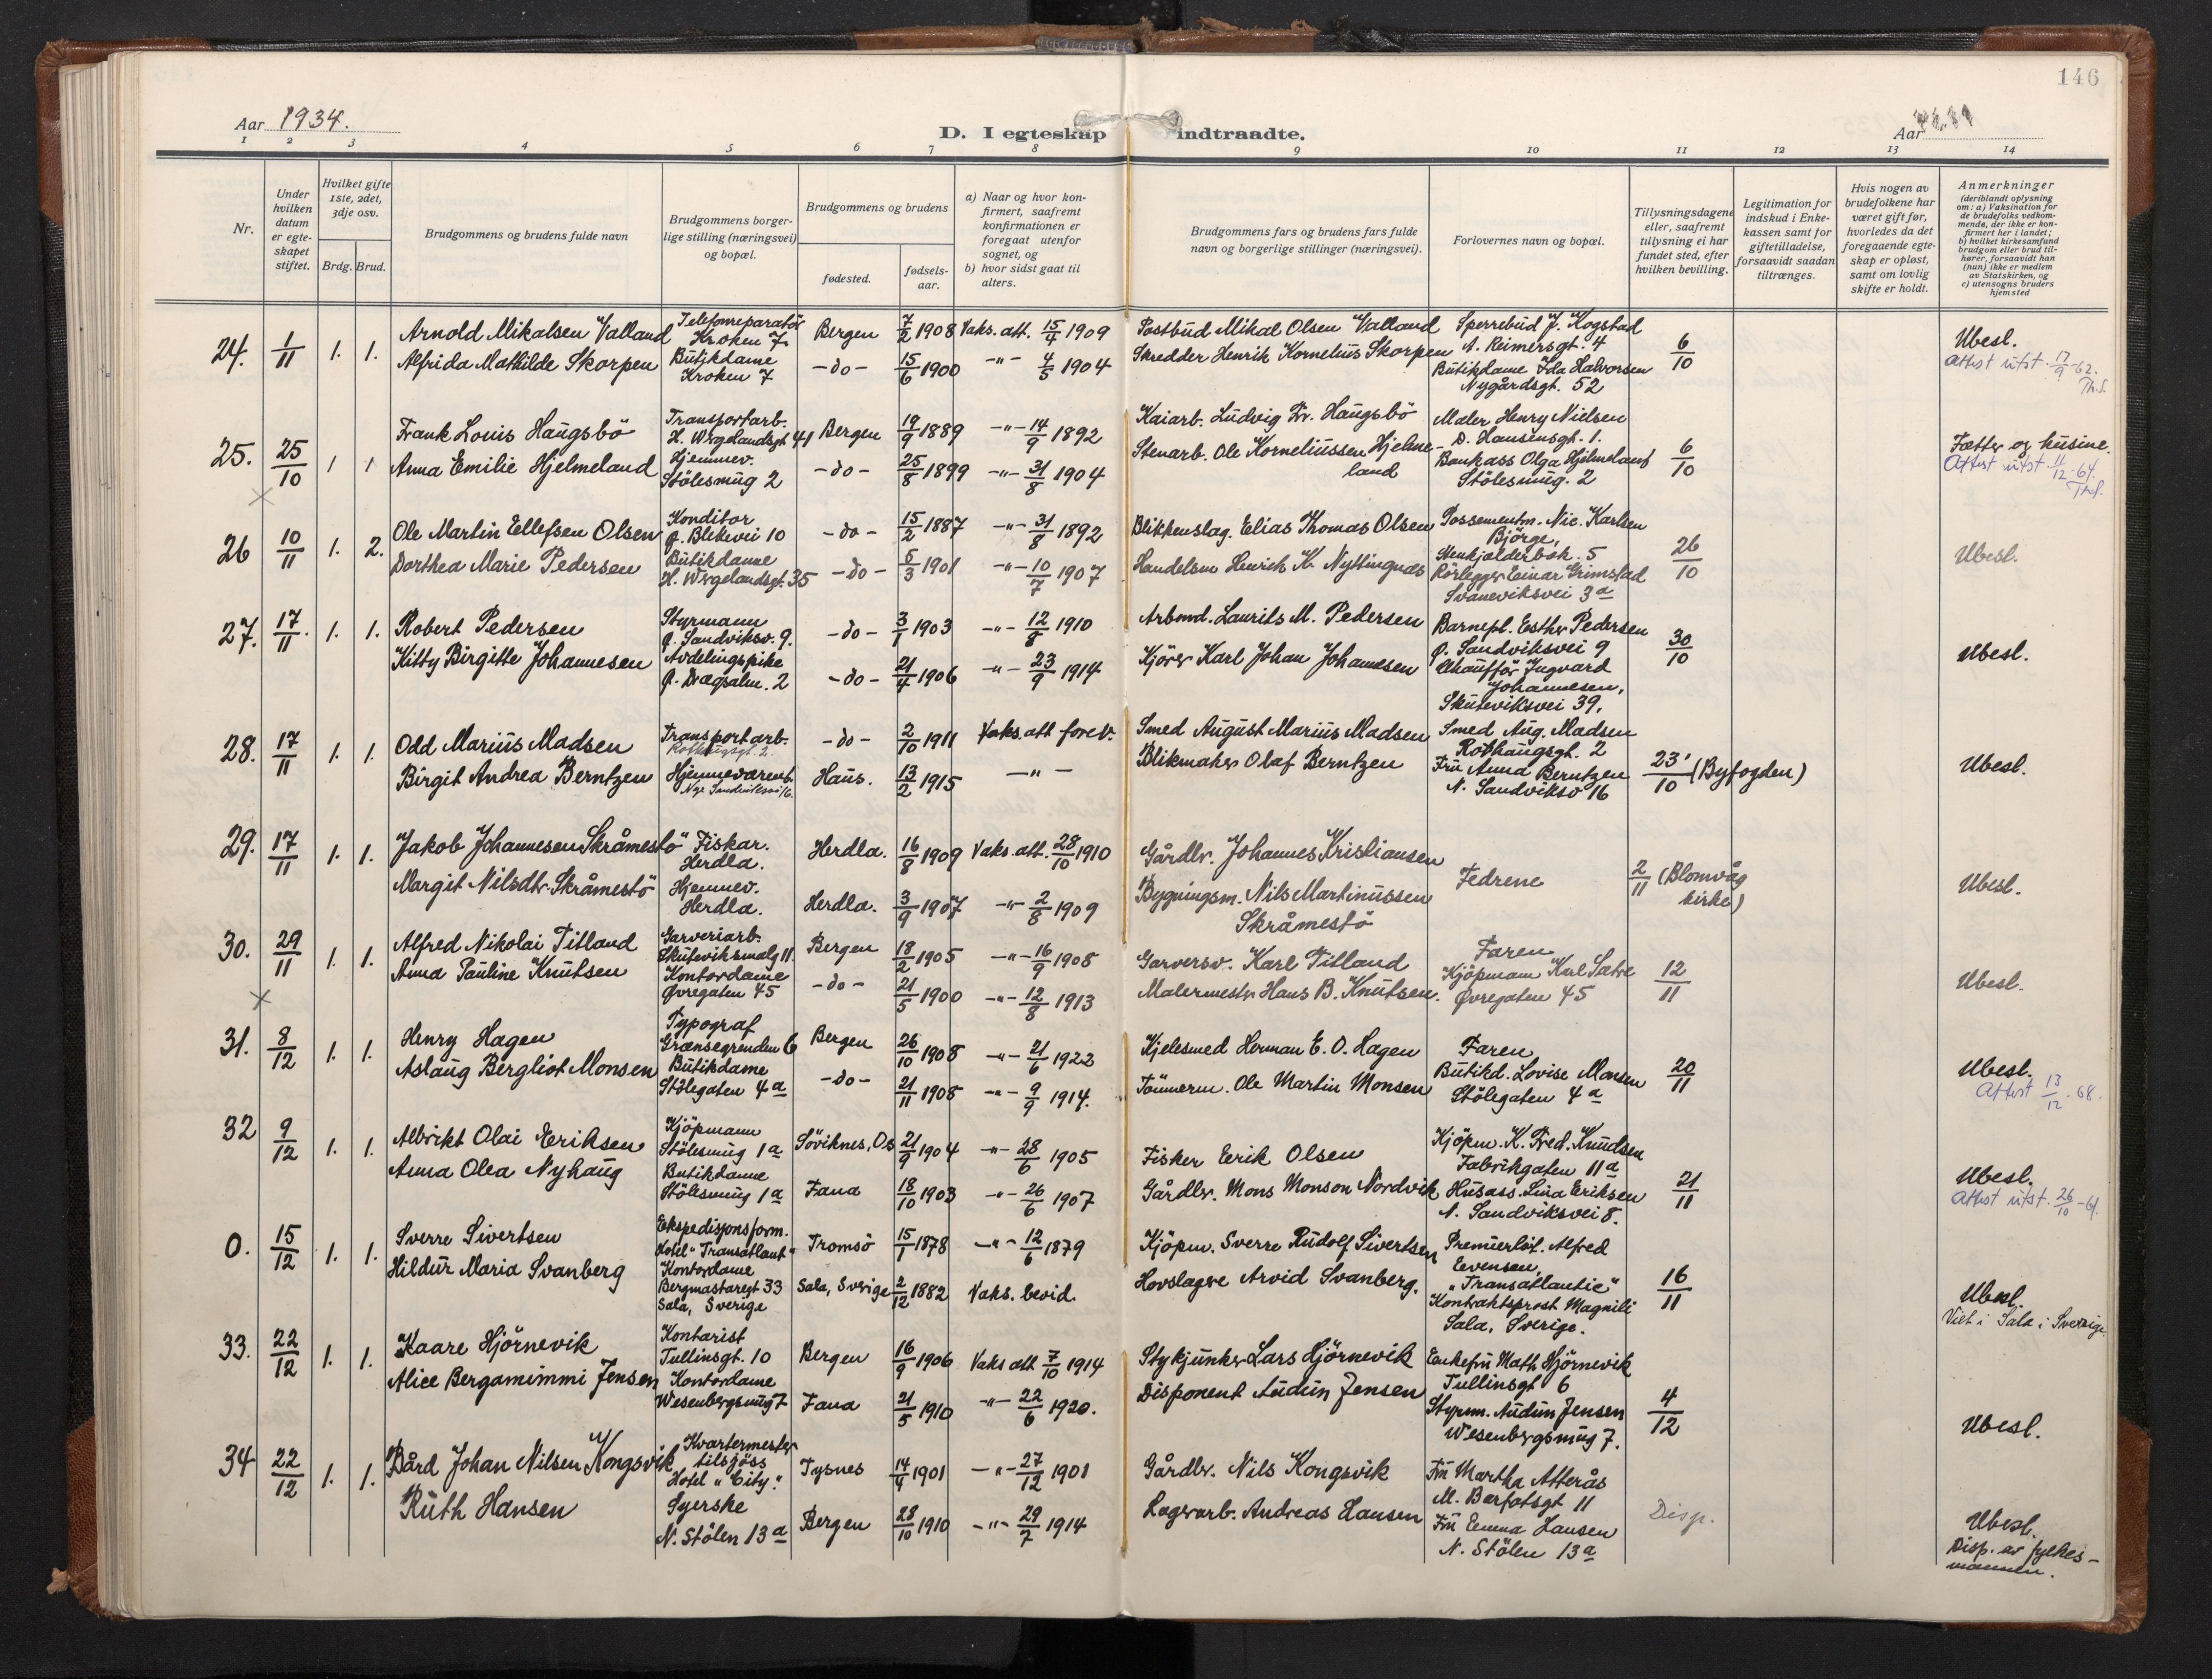 146
Aar 1934.
D. I egteskap indtraadte.
Aar
1 2 3 4 5 6 7 8 9 10 11 12 13 14
Nr.
Under hvilken datum er egteskapet stiftet.
Hvilket gifte 1ste, 2det, 3dje osv.
Brdg. Brud.
Brudgommens og brudens fulde navn
Brudgommens borgerlige stilling (næringsvei) og bopæl.
Brudgommens og brudens
fødested.
fødselsaar.
a) Naar og hvor konfirmert, saafremt konfirmationen er foregaat utenfor sognet, og
b) hvor sidst gaat til alters.
Brudgommens fars og brudens fars fulde navn og borgerlige stillinger (næringsvei).
Forlovernes navn og bopæl.
Tillysningsdagene eller, saafremt tillysning ei har fundet sted, efter hvilken bevilling.
Legitimation for indskud i Enkekassen samt for giftetilladelse, forsaavidt saadan tiltrænges.
Hvis nogen av brudefolkene har været gift før, hvorledes da det foregaaende egteskap er opløst, samt om lovlig skifte er holdt.
Anmerkninger (deriblandt oplysning om: a) Vaksination for de brudefolks vedkommende, der ikke er konfirmert her i landet; b) hvilket kirkesamfund brudgom eller brud tilhører, forsaavidt han (hun) ikke er medlem av Statskirken, og c) utensogns bruders hjemsted
24. 1/11 1. 1. Arnold Mikalsen Valland Telefonreparatör Kroken 7 Bergen 7/2 1908 Vaks. att. 15/4 1909 Postbud Mikal Olsen Valland Sperrebud J. Kogstad A. Reimersgt. 4 6/10 Ubesl.
Alfrida Mathilde Skorpen Butikdame Kroken 7 -do- 15/6 1900 -"- 4/5 1904 Skredder Henrik Kornelius Skorpen Butikdame Ida Halvorsen Nygårdsgt. 52 Attest utst. 17/9-62. Th.S.
25. 25/10 1 1 Frank Louis Haugsbö Transportarb. H. Wergelandsgt 41 Bergen 19/9 1889 -"- 14/9 1892 Kaiarb. Ludvig Fr. Haugsbö Maler Henry Nielsen D. Hansensgt. 1. 6/10 Fætter og kusine.
Anna Emilie Hjelmeland Hjemmev. Stölesmug 2 -do- 25/8 1899 -"- 31/8 1904 Stenarb. Ole Korneliussen Hjelmeland Bankass Olga Hjelmeland Stölesmug. 2 Attest utst. 11/12-64.
26 10/11 1. 2. Ole Martin Ellefsen Olsen Konditor Ö. Blekevei 10 -do- 15/2 1887 -"- 31/8 1892 Blikkenslag. Elias Thomas Olsen Possementm. Nic. Karlsen Björge, Stenkjelderbak. 5 26/10 Ubesl.
Dorthea Marie Pedersen Butikdame H. Wergelandsgt. 35 -do- 6/3 1901 -"- 10/7 1907 Handelsm Henrich K. Nyttingnes Rörlegger Einar Grimstad Svaneviksvei 3a
27. 17/11. 1. 1. Robert Pedersen Styrmann Ö. Sandviksv. 9. -do- 3/1 1903 -"- 12/8 1910 Arbmd. Laurits M. Pedersen Barnepl. Esther Pedersen Ö. Sandviksvei 9 30/10 Ubesl.
Kitty Birgitte Johannesen Avdelingspike Ö. Dregsalm. 2 -do- 21/4 1906 -"- 23/9 1914 Kjörer Karl Johan Johannesen Chaufför Ingvard Johannesen, Skuteviksvei 39.
28. 17/11 1. 1. Odd Marius Madsen Transportarb. Rothaugsgt. 2 -do- 2/10 1911 Vaks. att forev. Smed August Marius Madsen Smed Aug. Madsen Rothaugsgt. 2 23/10 (Byfogden) Ubesl.
Birgit Andrea Berntzen Hjemmeværend. Nye Sandviksvei 16. Haus. 13/2 1915 -"- Blikmaker Olaf Berntzen Fru Anna Berntzen N. Sandviksv 16
29. 17/11 1. 1. Jakob Johannesen Skråmestö Fiskar. Herdla. Herdla. 16/8 1909 Vaks. att. 28/10 1910 Gårdbr. Johannes Kristiansen Fedrene 2/11 (Blomvåg kirke) Ubesl.
Margit Nilsdtr. Skråmestö Hjemmev. Herdla. Herdla. 3/9 1907 -"- 2/8 1909 Bygningsm. Nils Martinussen Skråmestö
30. 29/11 1. 1. Alfred Nikolai Titland Garveriarb. Skuteviksmalg 11. Bergen 18/2 1905 -"- 16/9 1908 Garversv. Karl Titland Faren 12/11 Ubesl.
Anna Pauline Knutsen Kontordame Øvregaten 45 -do- 21/5 1900 -"- 12/8 1913 Malermester Hans B. Knutsen. Kjöpmann Karl Sætre Øvregaten 45
31. 8/12 1. 1. Henry Hagen Typograf Grænsegrenden 6 Bergen 26/10 1908 -"- 21/6 1922 Kjelesmed Herman E. O. Hagen Faren 20/11 Ubesl.
Aslaug Bergliot Monsen Butikdame Stölegaten 4a -do- 21/11 1905 -"- 9/9 1914. Tömmerm. Ole Martin Monsen Butikd. Lovise Monsen Stölegaten 4a Attest 13/12.68.
32 9/12 1. 1. Albrikt Olai Eriksen Kjöpmann Stölesmug 1a Söviknes, Os 21/9 1904 -"- 28/6 1905 Fisker Eerik Olsen Kjöpm. K. Fred. Knudsen Fabrikgaten 11a 21/11 Ubesl.
Anna Olea Nyhaug Butikdame Stölesmug 1a Fana 18/10 1903 -"- 26/6 1907 Gårdbr. Mons Monson Nordvik Husass. Lina Eriksen N. Sandviksvei 8. Attest utst. 26/10-61.
0. 15/12 1. 1. Sverre Sivertsen Ekspedisjonsform. Hotel "Transatlant" Tromsö 15/1 1878 -"- 12/6 1879 Kjöpm. Sverre Rudolf Sivertsen Premierløt. Alfred Evensen, "Transatlantic" 16/11 Ubesl.
Hildur Maria Svanberg Kontordame Bergmastaregt 33 Sala, Sverige Sala, Sverige 2/12 1882 Vaks. bevid. Hovslagere Arvid Svanberg. Kontraktsprost Magnili Sala, Sverige. Viet i Sala i Sverige
33. 22/12 1. 1. Kaare Hjörnevik Kontorist Tullinsgt. 10 Bergen 16/9 1906 Vaks att 7/10 1914 Stykjunker Lars Hjörnevik Enkefru Math Hjörnevik Tullinsgt 6 4/12 Ubesl.
Alice Bergamimmi Jensen Kontordame Wesenbergsmug 7 Fana 21/5 1910 -"- 22/6 1920. Disponent Audun Jensen Styrm. Audun Jensen Wesenbergsmug 7.
34 22/12 1. 1. Bård Johan Nilsen Kongsvik Kvartermester tilsjöss Hotel "City." Tysnes 14/4 1901 -"- 27/12 1901 Gårdbr. Nils Kongsvik Fru Martha Atterås M. Barfotsgt 11 Disp. Ubesl.
Ruth Hansen Syerske N. Stölen 13a Bergen 28/10 1910 -"- 29/7 1914 Lagerarb. Andreas Hansen Fru Emma Hansen N. Stölen 13a Disp. av fylkesmannen.